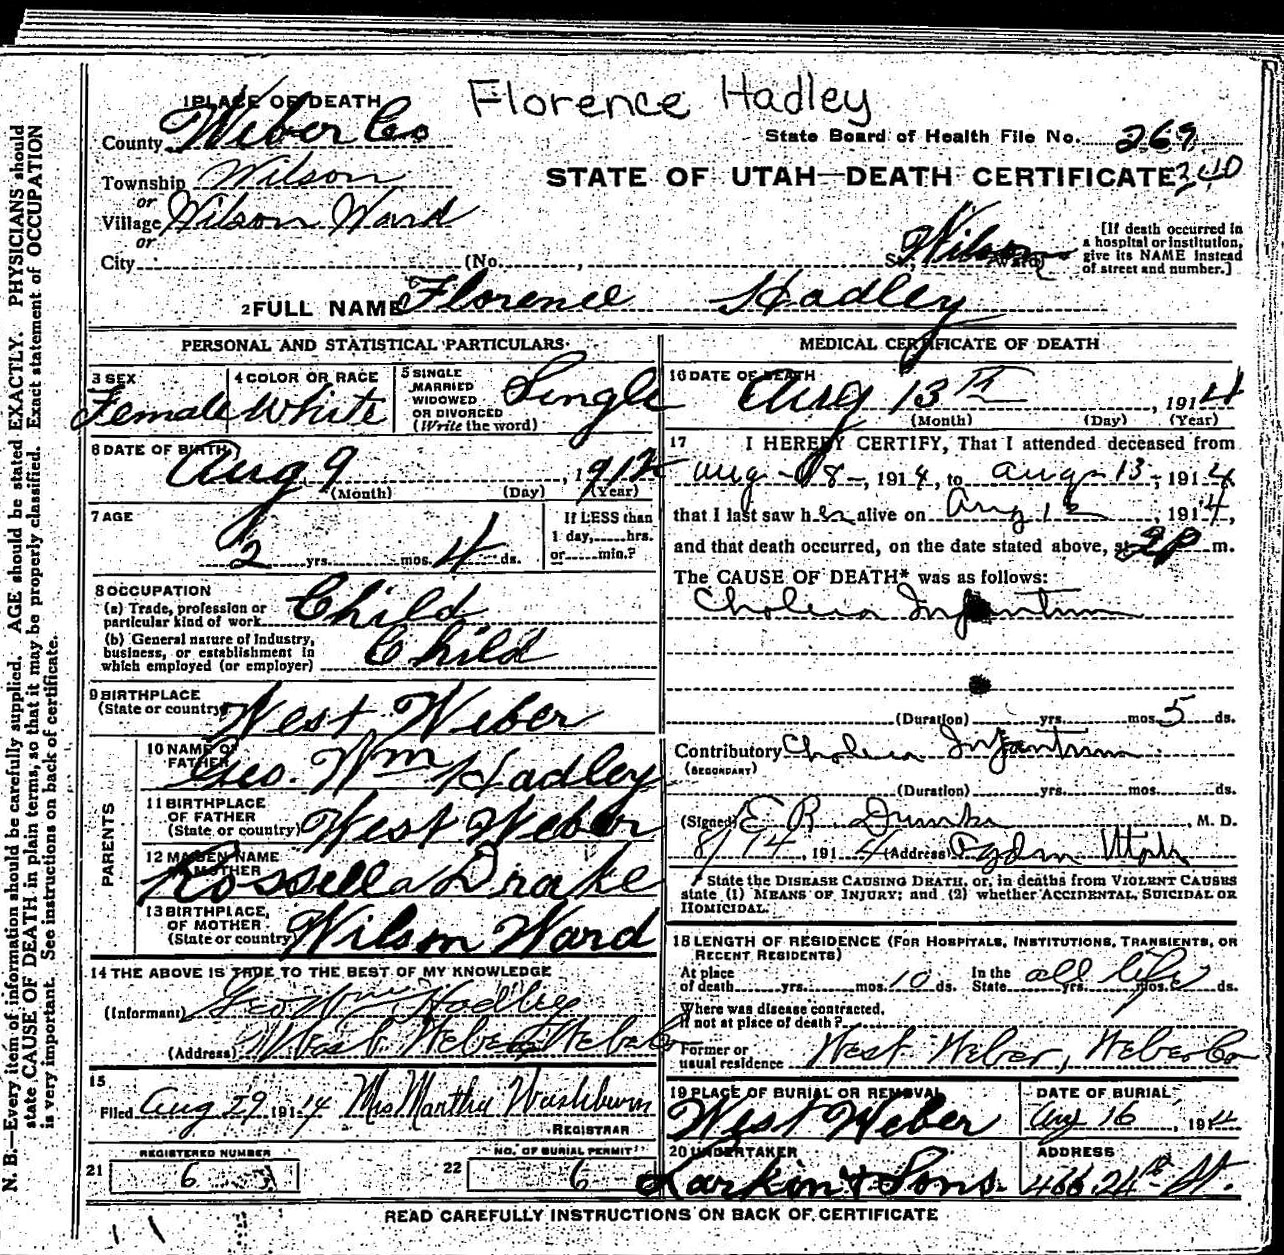 Florence Hadley
1 PLACE OF DEATH
County Weber Co
State Board of Health File No. 269
Township Wilson
STATE OF UTAH—DEATH CERTIFICATE 340
or
Village Wilson Ward
or
City (No. , St., Wilson Ward)
[If death occurred in
a hospital or institution,
give its NAME instead
of street and number.]
2 FULL NAME Florence Hadley
PERSONAL AND STATISTICAL PARTICULARS
3 SEX
Female
4 COLOR OR RACE
White
5 SINGLE
MARRIED
WIDOWED
OR DIVORCED
(Write the word)
Single
6 DATE OF BIRTH
Aug 9, 1912
(Month) (Day) (Year)
7 AGE
2 yrs. mos. 4 ds.
If LESS than
1 day, hrs.
or min.?
8 OCCUPATION
(a) Trade, profession or
particular kind of work Child
(b) General nature of Industry,
business, or establishment in
which employed (or employer) Child
9 BIRTHPLACE
(State or country) West Weber
PARENTS
10 NAME OF
FATHER Geo. Wm Hadley
11 BIRTHPLACE
OF FATHER
(State or country) West Weber
12 MAIDEN NAME
OF MOTHER Rossella Drake
13 BIRTHPLACE
OF MOTHER
(State or country) Wilson Ward
14 THE ABOVE IS TRUE TO THE BEST OF MY KNOWLEDGE
(Informant) Geo Wm Hadley
(Address) West Weber Weber Co
15
Filed Aug 29 1914 Mrs Martha Washburn
REGISTRAR
REGISTERED NUMBER
21 6
NO. OF BURIAL PERMIT
22 6
MEDICAL CERTIFICATE OF DEATH
16 DATE OF DEATH
Aug 13th, 1914
(Month) (Day) (Year)
17 I HEREBY CERTIFY, That I attended deceased from
Aug 8, 1914, to Aug 13, 1914,
that I last saw her alive on Aug 12, 1914,
and that death occurred, on the date stated above, at 2 P m.
The CAUSE OF DEATH* was as follows:
Cholera Infantum
(Duration) yrs. mos. 5 ds.
Contributory Cholera Infantum
(SECONDARY)
(Duration) yrs. mos. ds.
(Signed) E. R. , M. D.
8/14, 1914 (Address) Ogden Utah
* State the DISEASE CAUSING DEATH, or, in deaths from VIOLENT CAUSES
state (1) MEANS OF INJURY; and (2) whether ACCIDENTAL, SUICIDAL OR
HOMICIDAL.
18 LENGTH OF RESIDENCE (FOR HOSPITALS, INSTITUTIONS, TRANSIENTS, OR
RECENT RESIDENTS)
At place
of death yrs. mos. 10 ds.
In the
State all life yrs. mos. ds.
Where was disease contracted,
if not at place of death?
Former or
usual residence West Weber, Weber Co
19 PLACE OF BURIAL OR REMOVAL
West Weber
DATE OF BURIAL
Aug 16, 1914
20 UNDERTAKER
Larkin & Sons.
ADDRESS
466 24th St.
READ CAREFULLY INSTRUCTIONS ON BACK OF CERTIFICATE
N. B.—Every item of information should be carefully supplied. AGE should be stated EXACTLY. PHYSICIANS should
state CAUSE OF DEATH in plain terms, so that it may be properly classified. Exact statement of OCCUPATION
is very important. See instructions on back of certificate.